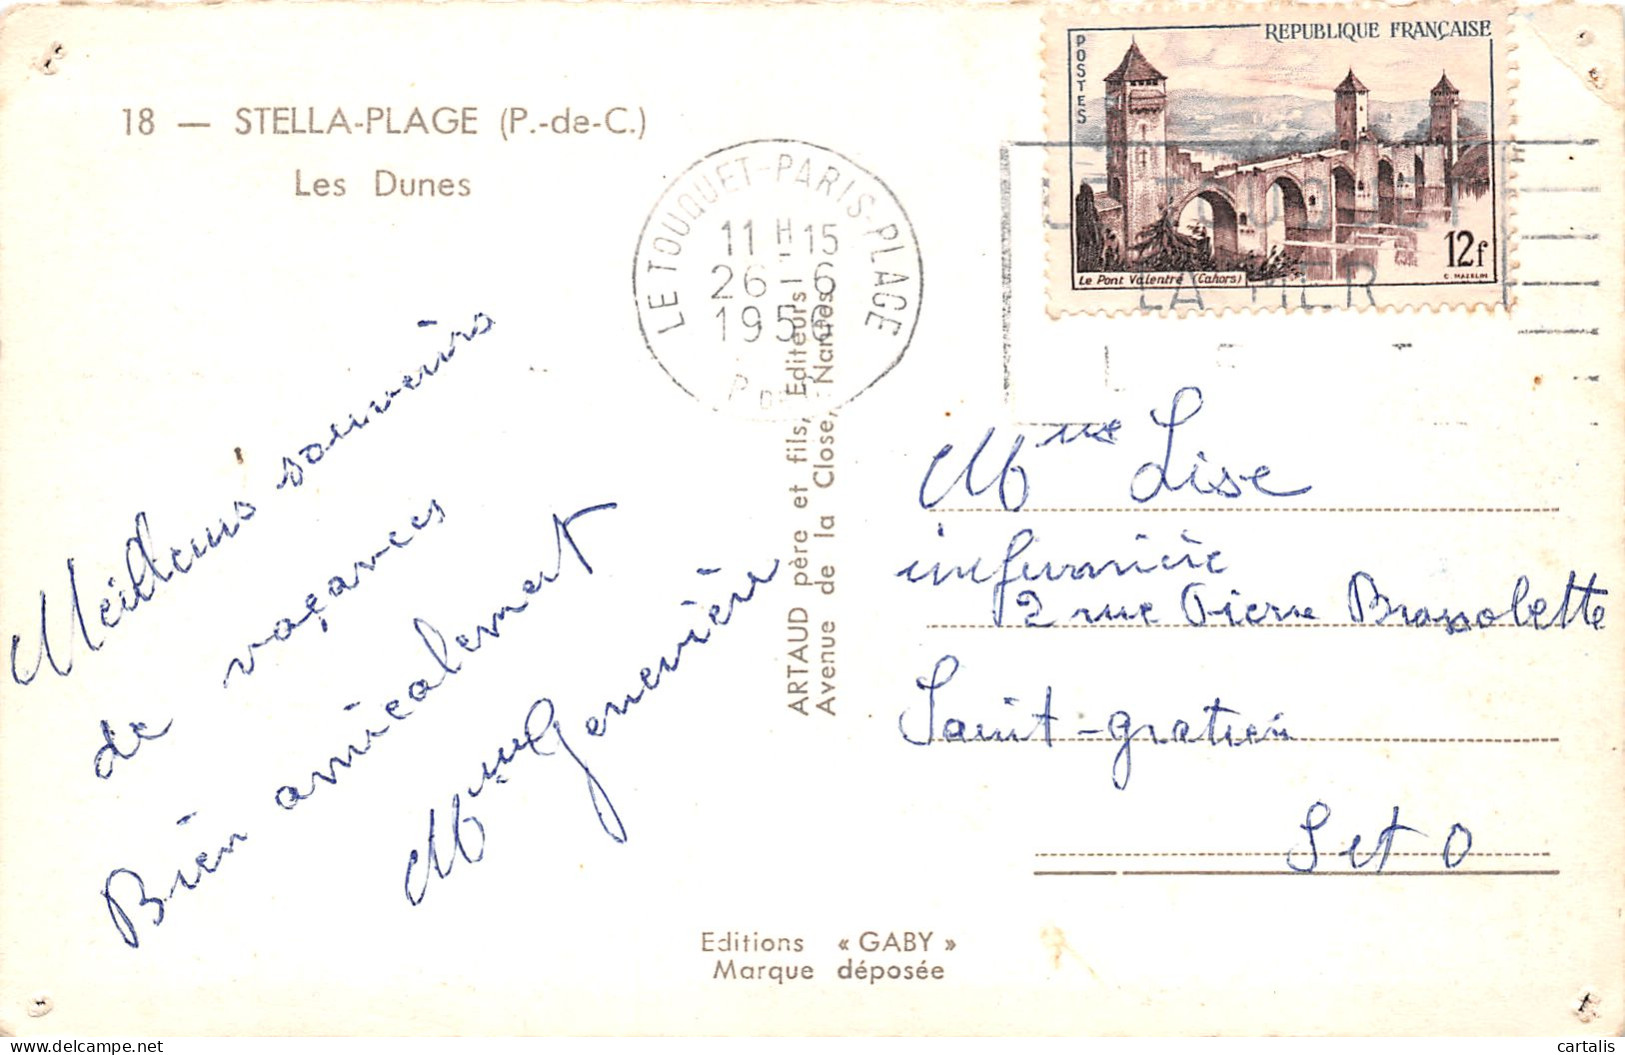 18 — STELLA-PLAGE (P.-de-C.)
Les Dunes
LE TOUQUET-PARIS-PLAGE
11 H 15
26 - 6
195
P DE
REPUBLIQUE FRANÇAISE
POSTES
12f
Le Pont Valentré (Cahors)
C. MAZELIN
LE TOUQUET
LA MER
Meilleurs souvenirs
de vacances
Bien amicalement
Mme Geneviève
ARTAUD père et fils, Editeurs
Avenue de la Close, Nantes
Mme Lise
infirmière
2 rue Pierre Brossolette
Saint-gratien
S et O
Editions « GABY »
Marque déposée
cartalis